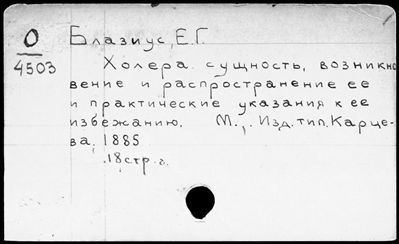 О
4503
Блазиус, Е.Г.
Холера. сущность, возникно
вение и распространение ее
и практические указания к ее
избежанию. М., Изд. тип. Карце-
ва, 1885
18 стр.